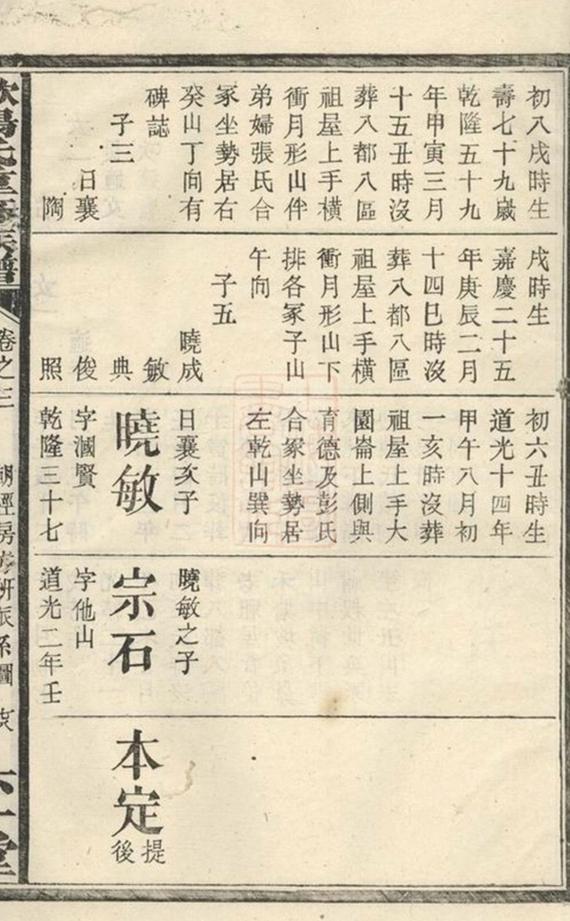 初八戌時生
壽七十九歲
乾隆五十九
年甲寅三月
十五丑時沒
葬八都八區
祖屋上手橫
衝月形山伴
弟婦張氏合
冢坐勢居右
癸山丁向有
碑誌
子三
日襄
陶
戌時生
嘉慶二十五
年庚辰二月
十四巳時沒
葬八都八區
祖屋上手橫
衝月形山下
排各冢子山
午向
子五
曉成
敏
典
俊
照
初六丑時生
道光十四年
甲午八月初
一亥時沒葬
祖屋上手大
園崙上側與
育德及彭氏
合冢坐勢居
左乾山巽向
日襄次子
曉敏
字涸賢
乾隆三十七
曉敏之子
宗石
字他山
道光二年壬
本定
提
後
卷之三